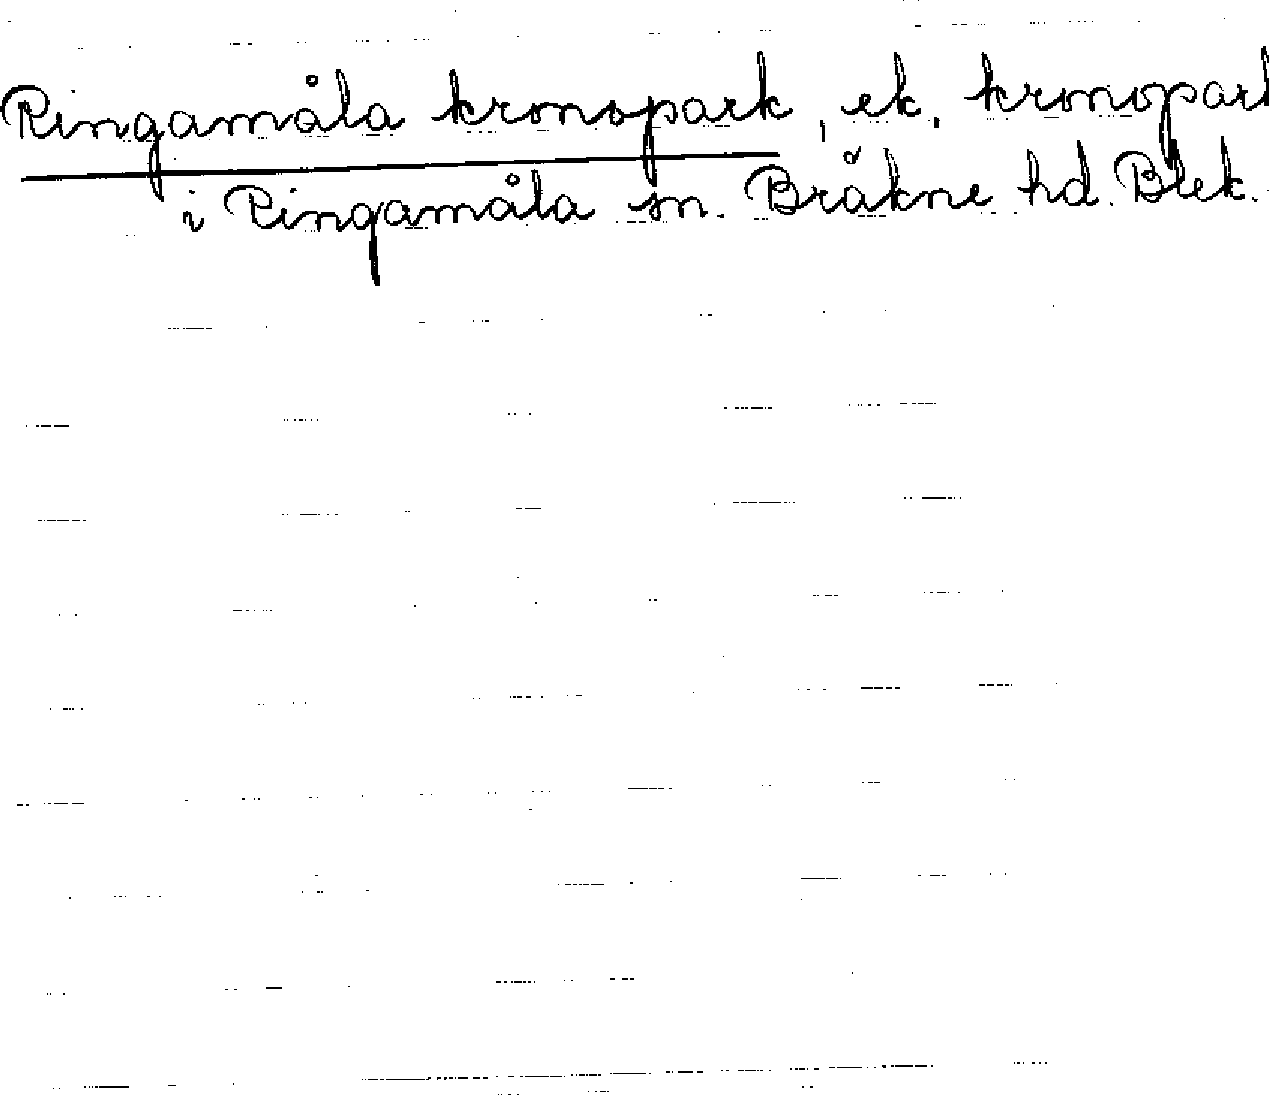 Ringamåla kronopark, ek. kronopark
i Ringamåla sn. Bräkne hd. Blek.